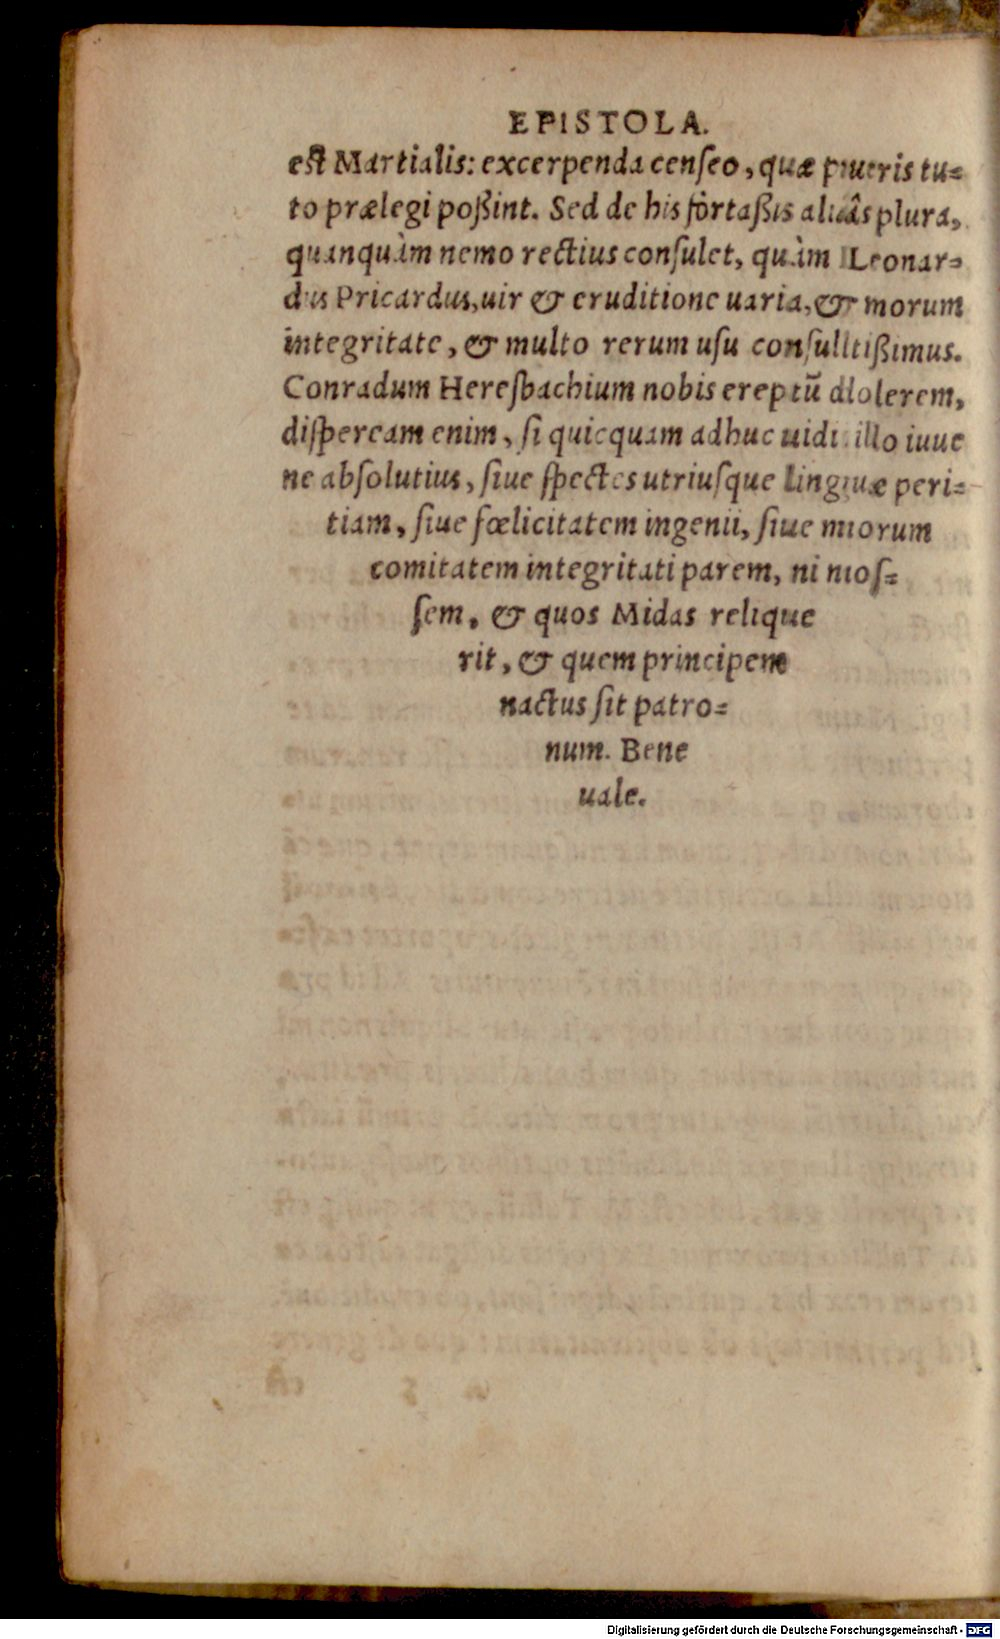 EPISTOLA.
est Martialis: excerpenda censeo, quæ pueris tu=
to prælegi poßint. Sed de his fortaßis aliâs plura,
quanquàm nemo rectius consulet, quàm Leonar=
dus Pricardus, uir & eruditione uaria, & morum
integritate, & multo rerum usu consultißimus.
Conradum Heresbachium nobis ereptũ dolerem,
dispeream enim, si quicquam adhuc uidi illo iuue
ne absolutius, siue spectes utriusque linguæ peri=
tiam, siue fœlicitatem ingenii, siue morum
comitatem integritati parem, ni nos=
sem, & quos Midas relique
rit, & quem principem
nactus sit patro=
num. Bene
uale.
Digitalisierung gefördert durch die Deutsche Forschungsgemeinschaft - DFG